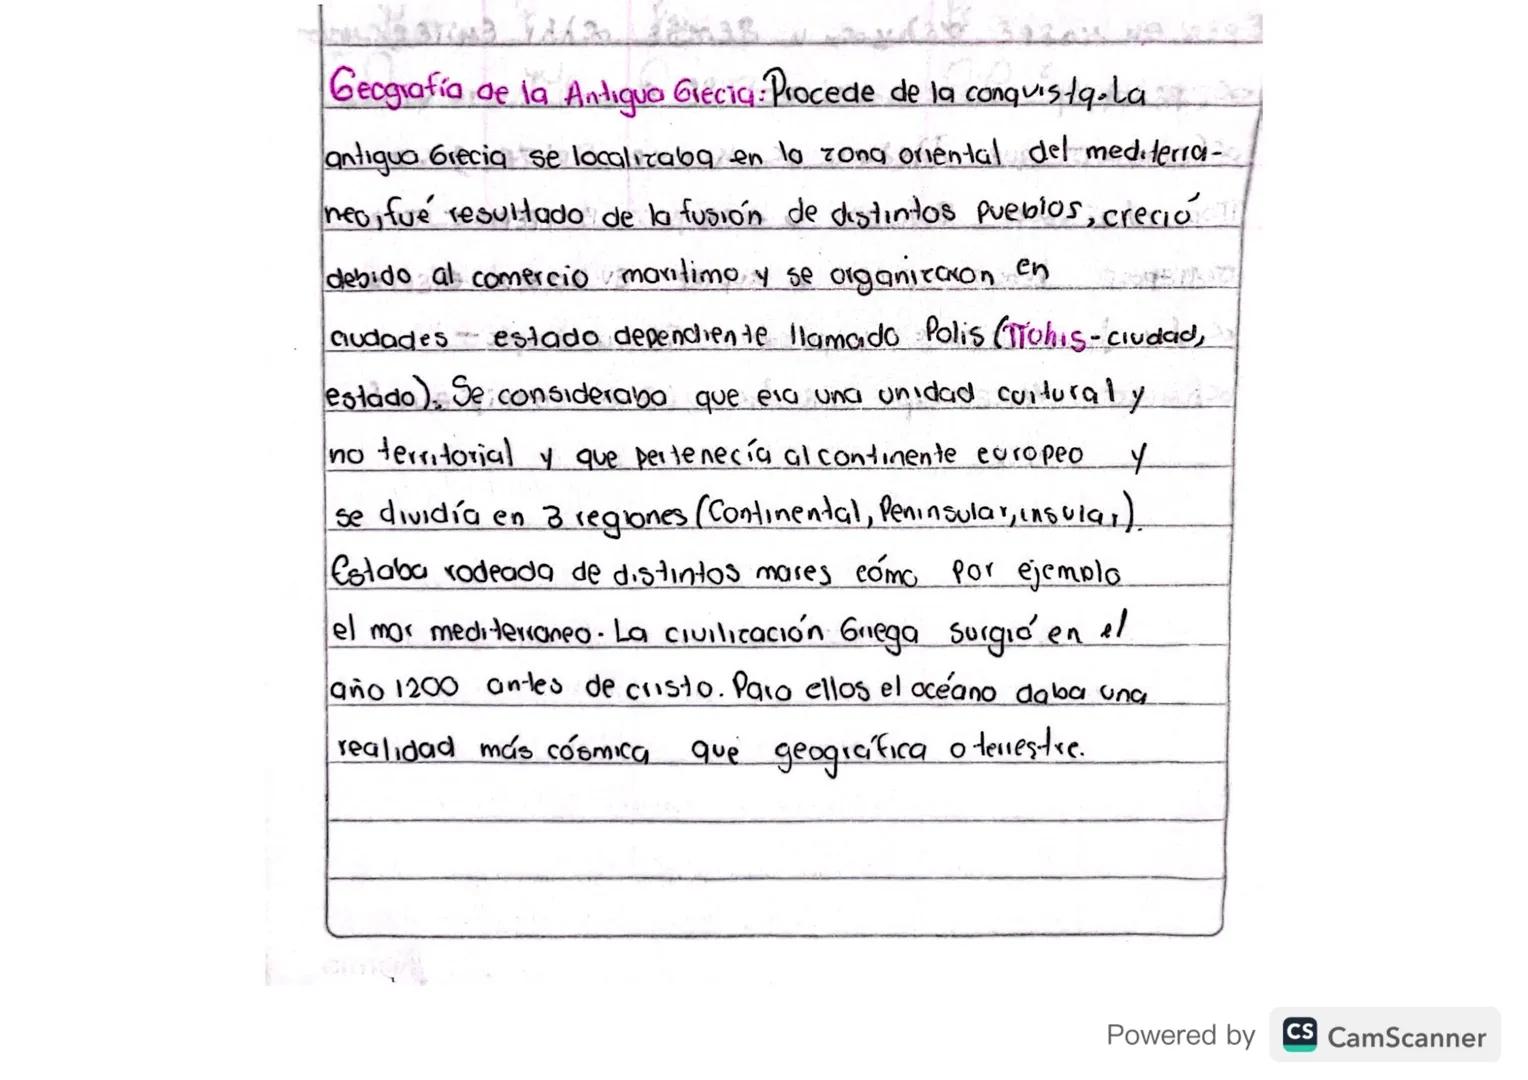 Geografía de la Antigua Grecia: Procede de la conquista. La
antigua Grecia se localizaba en la zona oriental del mediterra-
neo, fué resultado de la fusión de distintos pueblos, creció
debido al comercio marítimo y se organizaron en
ciudades - estado dependiente llamado Polis (πολis - ciudad,
estado). Se consideraba que era una unidad cultural y
no territorial y que pertenecía al continente europeo y
se dividía en 3 regiones (Continental, Peninsular, insular).
Estaba rodeada de distintos mares cómo por ejemplo
el mar mediterraneo. La civilización Griega surgió en el
año 1200 antes de cristo. Para ellos el océano daba una
realidad más cósmica que geográfica o terrestre.
Powered by CS CamScanner